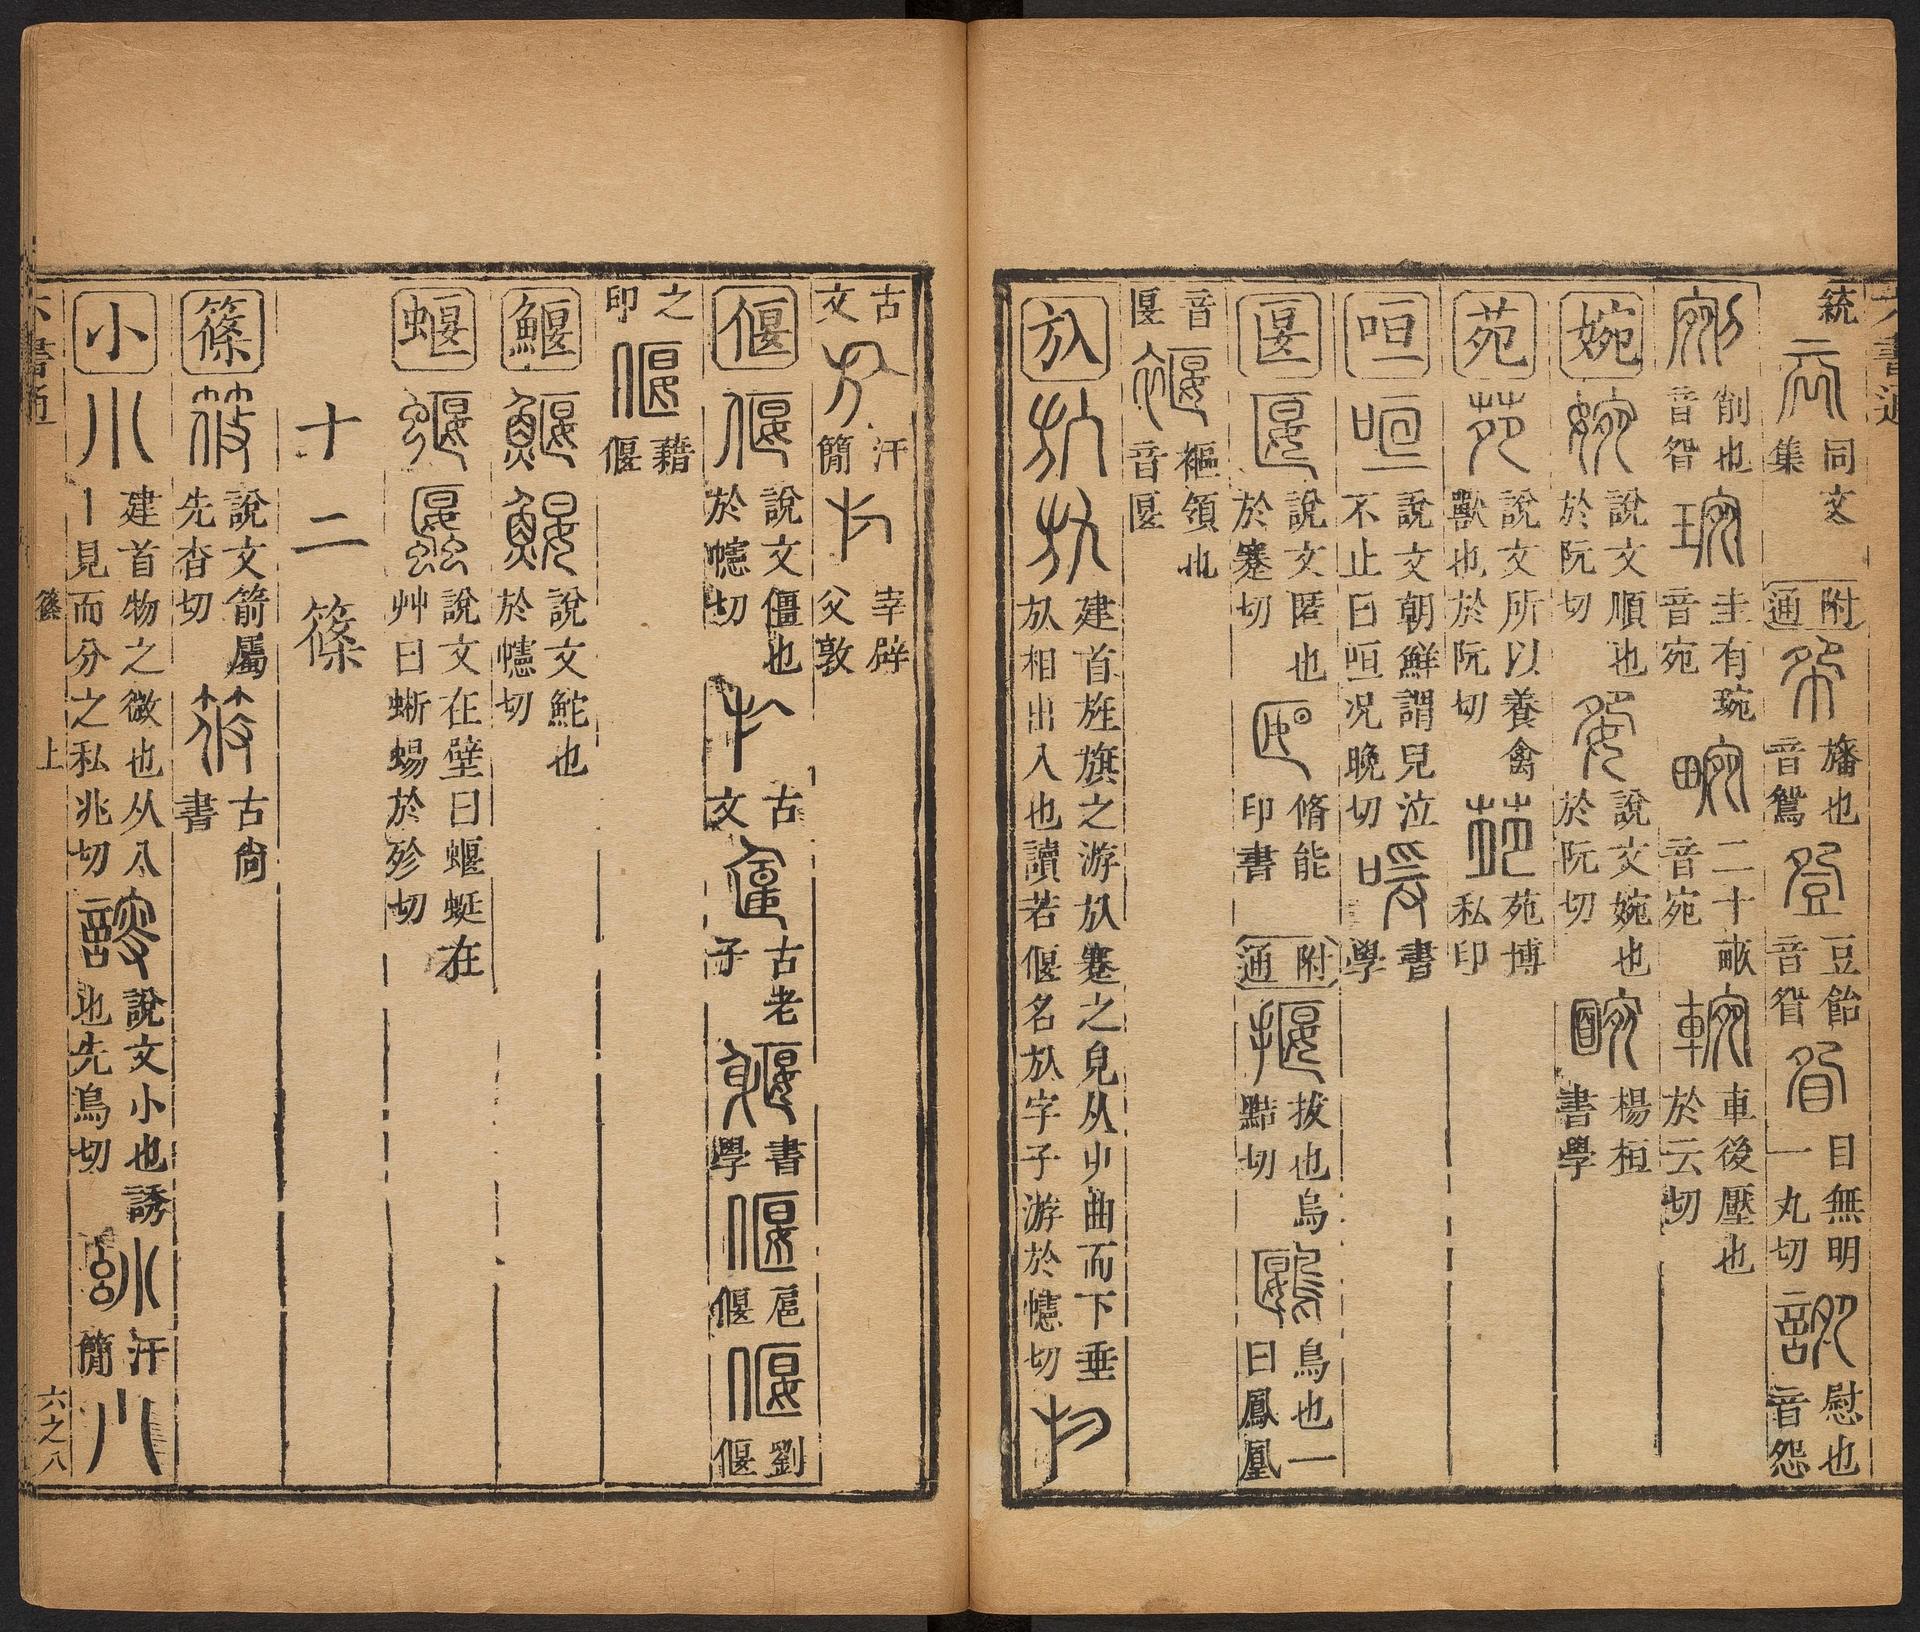 六書通
統
同文
集
附通
旛也
音鴛
豆飴
音眢
目無明
一丸切
慰也
音怨
削也
音眢
圭有琬
音宛
二十畝
音宛
車後壓也
於云切
婉
說文順也
於阮切
說文婉也
於阮切
楊桓
書學
苑
說文所以養禽
獸也於阮切
苑博
私印
咺
說文朝鮮謂兒泣
不止曰咺况晚切
書
學
匽
說文匿也
於蹇切
脩能
印書
附通
拔也烏
黠切
鳥也一
曰鳳凰
音
匽
褗領也
音匽
㫃
建首旌旗之游㫃蹇之皃从屮曲而下垂
㫃相出入也讀若偃名㫃字子游於幰切
古
文
汗
簡
宰辟
父敦
偃
說文僵也
於幰切
古
文
古老
子
書
學
扈
偃
劉
偃
之
印
藉
偃
鰋
說文鮀也
於幰切
蝘
說文在壁曰蝘蜓在
艸曰蜥蜴於殄切
十二篠
篠
說文箭屬
先杳切
古尙
書
小
建首物之微也从八
丨見而分之私兆切
說文小也誘
也先鳥切
汗
簡
六書通
篠
上
六之八